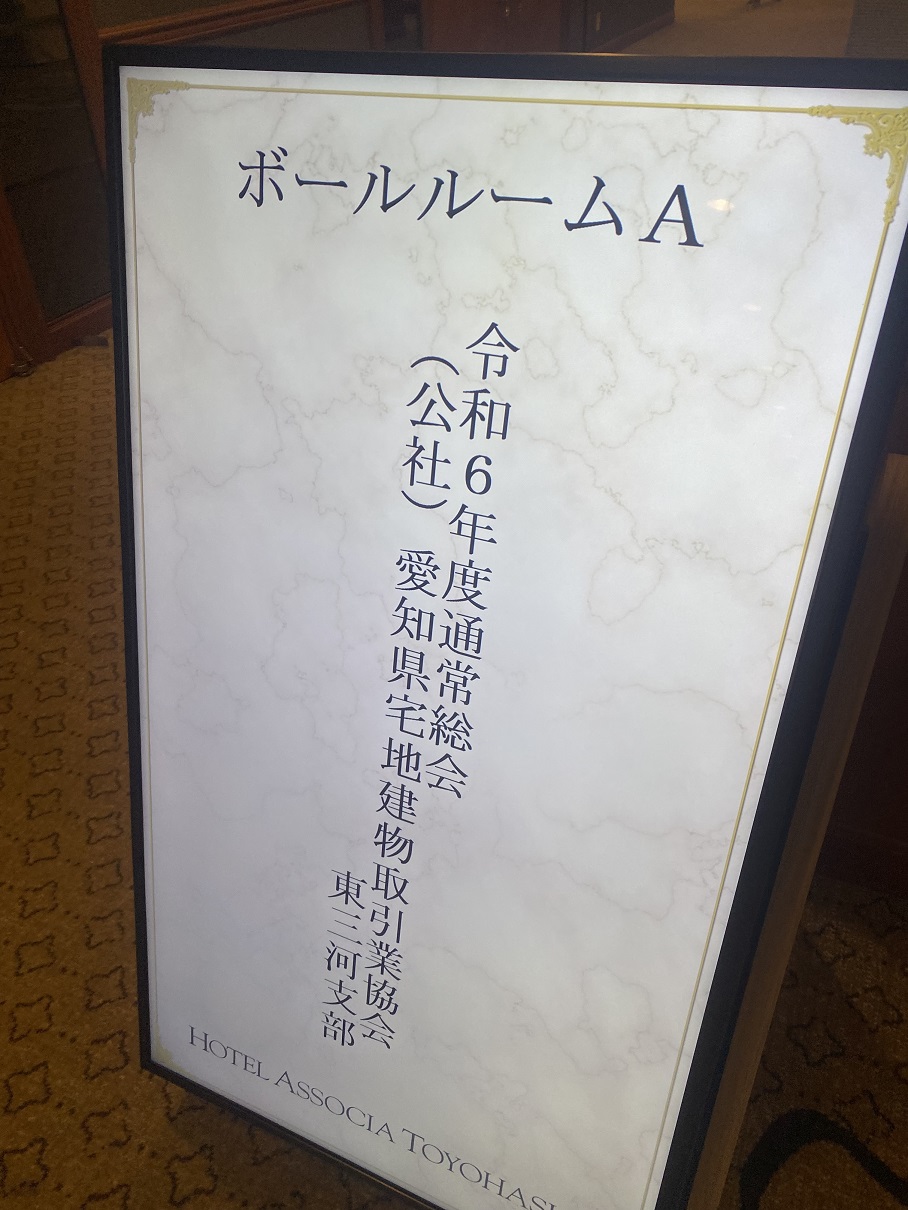 ボールルームA
令和6年度通常総会
（公社）　愛知県宅地建物取引業協会
東三河支部
HOTEL ASSOCIA TOYOHASHI